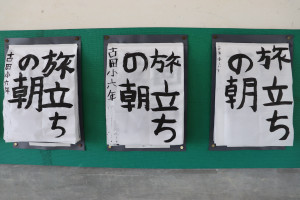 旅立ち
の朝
古田小六年
旅立ち
の朝
古田小六年
旅立ち
の朝